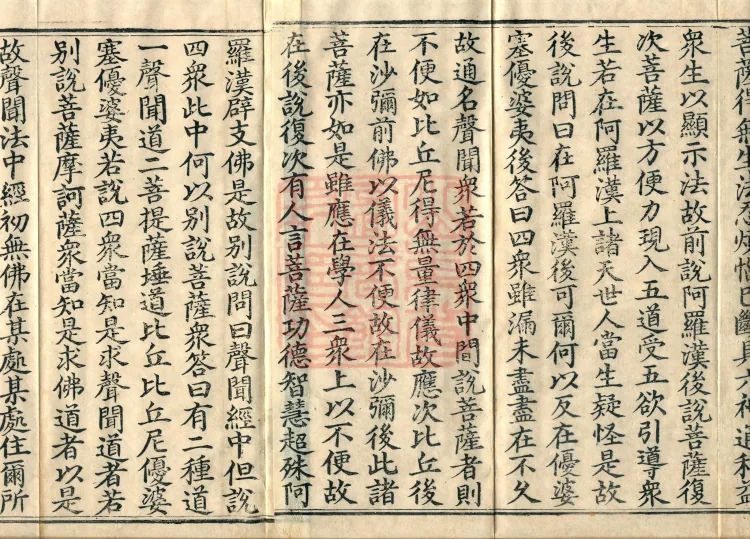 菩薩得無生法忍煩惱已斷具六神通利益
衆生以顯示法故前說阿羅漢後說菩薩復
次菩薩以方便力現入五道受五欲引導衆
生若在阿羅漢上諸天世人當生疑怪是故
後說問曰在阿羅漢後可爾何以乃在優婆
塞優婆夷後答曰四衆雖漏未盡盡在不久
故通名聲聞衆若於四衆中間說菩薩者則
不便如比丘尼得無量律儀故應次比丘後
在沙彌前佛以儀法不便故在沙彌後此諸
菩薩亦如是雖應在學人三衆上以不便故
在後說復次有人言菩薩功德智慧超殊阿
羅漢辟支佛是故別說問曰聲聞經中但說
四衆此中何以別說菩薩衆答曰有二種道
一聲聞道二菩提薩埵道比丘比丘尼優婆
塞優婆夷若說四衆當知是求聲聞道者若
別說菩薩摩訶薩衆當知是求佛道者以是
故聲聞法中經初無佛在某處某處住爾所